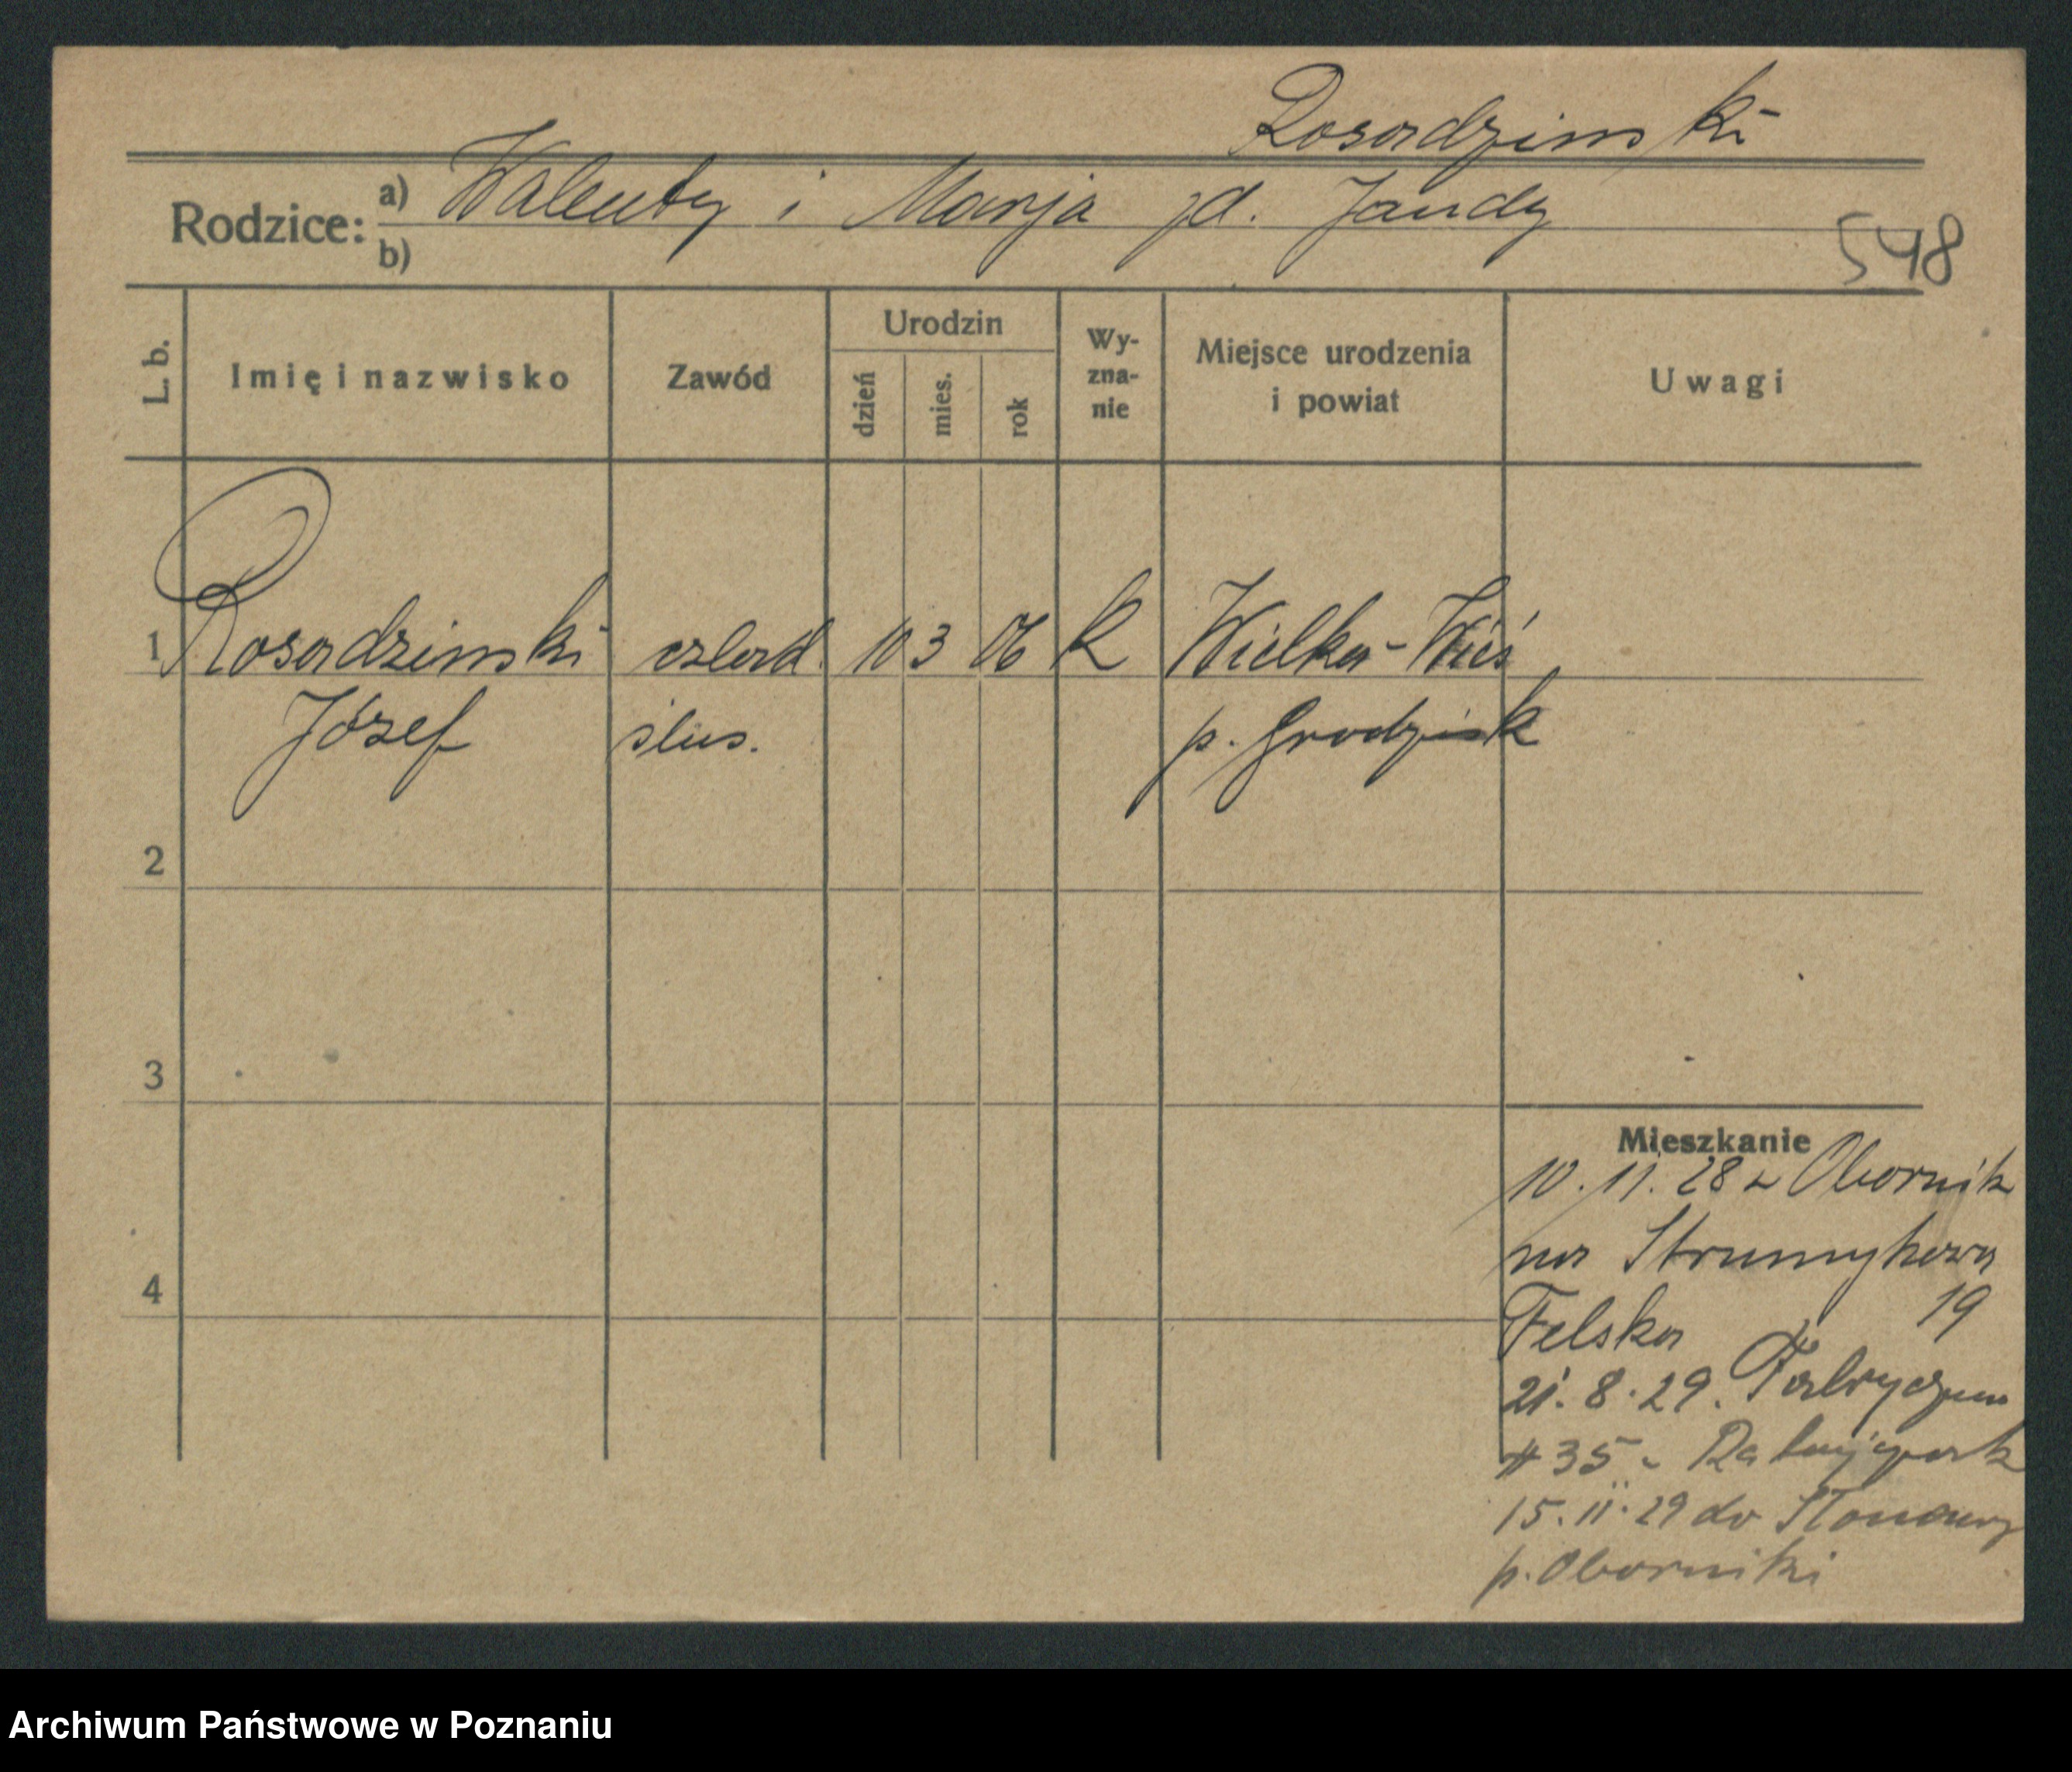 Rosadzinski
Rodzice: a) Walenty i Marja zd. Jandy
b)
548
L. b.
Imię i nazwisko
Zawód
Urodzin
dzień
mies.
rok
Wy-
zna-
nie
Miejsce urodzenia
i powiat
Uwagi
1 Rosadzinski czelad. 10 3 06 K Wielka-Wieś
Józef ślus. p. Grodzisk
2
3
4
Mieszkanie
10.11.28 z Obornik
na Strumykowa
19
Felska
21.8.29. Fabryczna
# 35 -
15.11.29 do
p. Oborniki
Archiwum Państwowe w Poznaniu